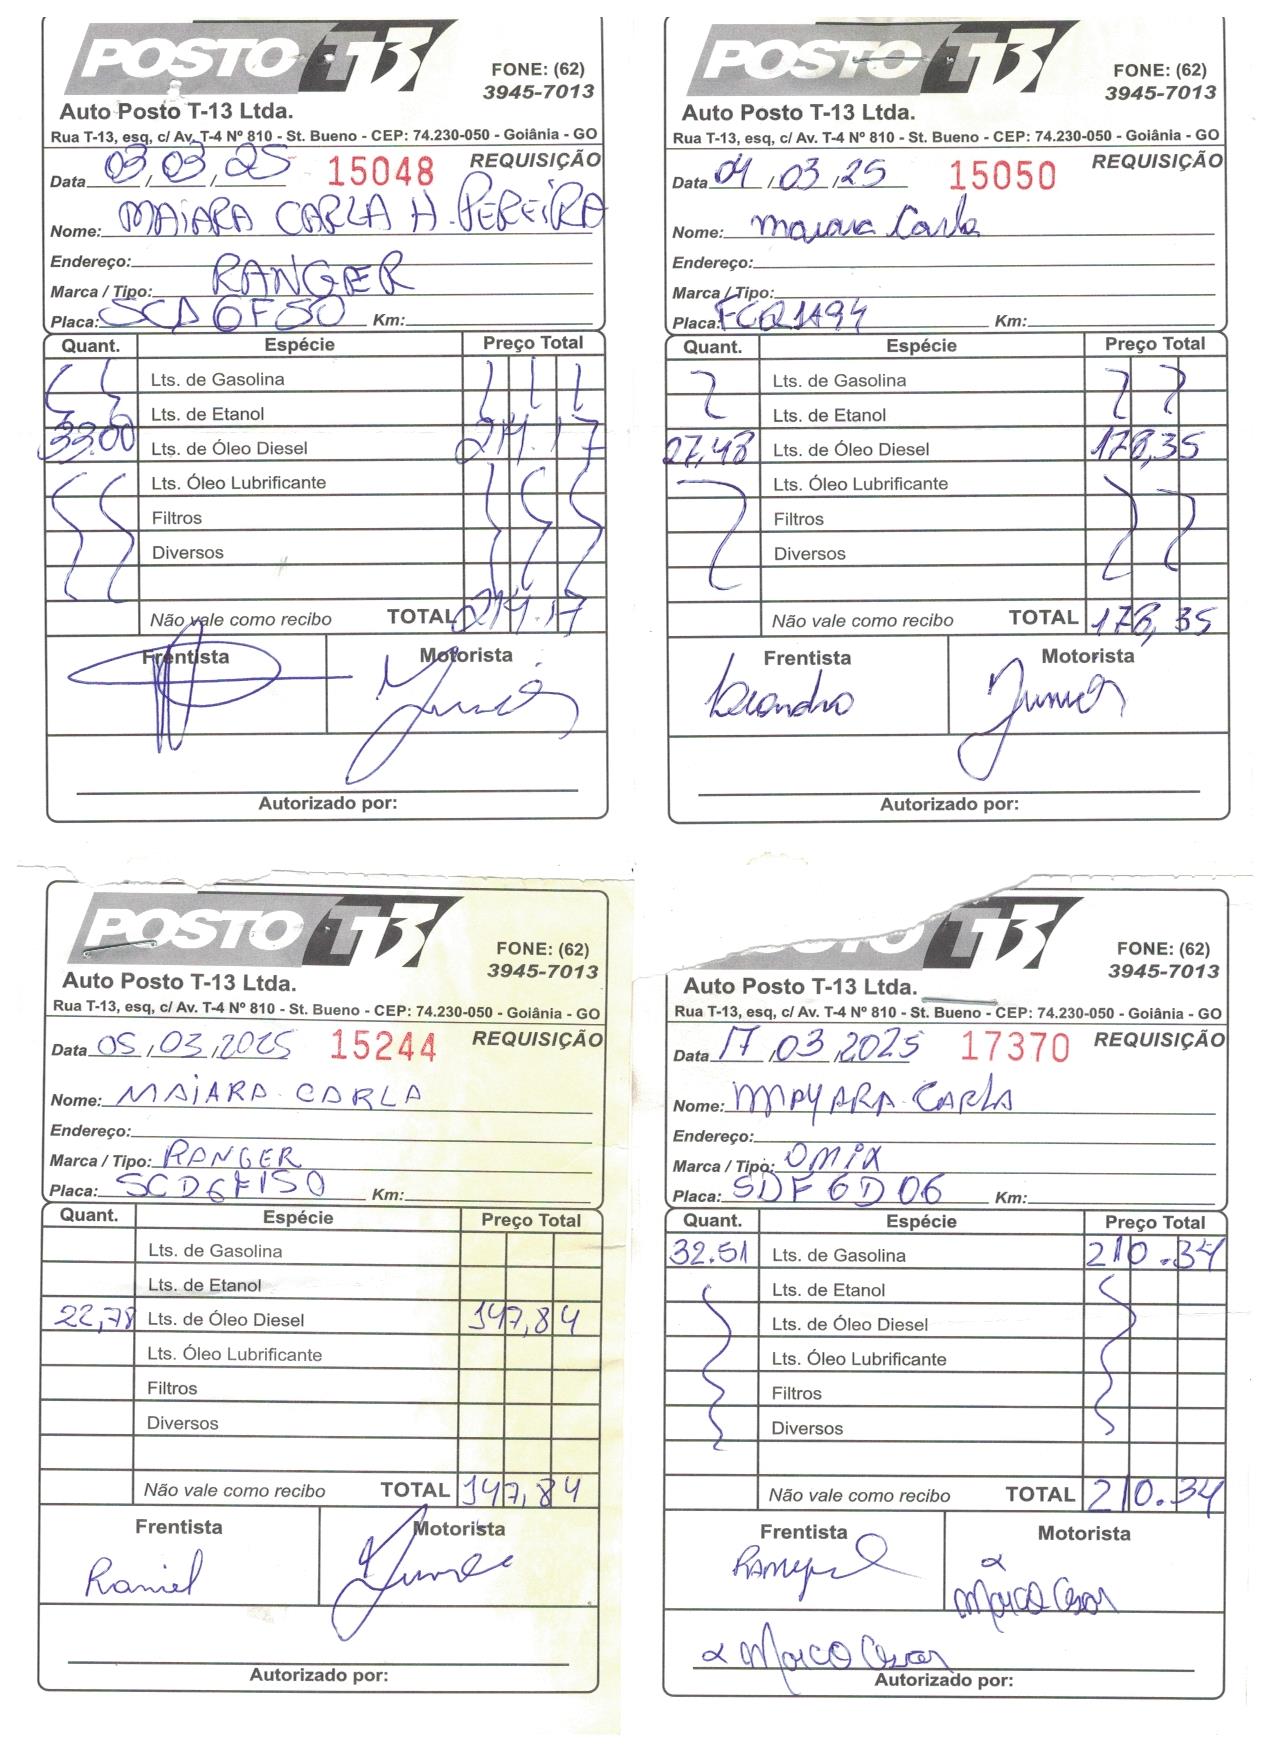 POSTO T-13
FONE: (62)
3945-7013
Auto Posto T-13 Ltda.
Rua T-13, esq, c/ Av. T-4 Nº 810 - St. Bueno - CEP: 74.230-050 - Goiânia - GO
REQUISIÇÃO
Data 03/03/25 15048
Nome: MAIARA CARLA H. PEREIRA
Endereço:
Marca / Tipo: RANGER
Placa: SCD6F50 Km:
Quant. Espécie Preço Total
Lts. de Gasolina
Lts. de Etanol
33.00 Lts. de Óleo Diesel 214.17
Lts. Óleo Lubrificante
Filtros
Diversos
Não vale como recibo TOTAL 214.17
Frentista Motorista
Junior
Autorizado por:
POSTO T-13
FONE: (62)
3945-7013
Auto Posto T-13 Ltda.
Rua T-13, esq, c/ Av. T-4 Nº 810 - St. Bueno - CEP: 74.230-050 - Goiânia - GO
REQUISIÇÃO
Data 04/03/25 15050
Nome: Maiara Carla
Endereço:
Marca / Tipo:
Placa: FCQ1A94 Km:
Quant. Espécie Preço Total
Lts. de Gasolina
Lts. de Etanol
27,48 Lts. de Óleo Diesel 178,35
Lts. Óleo Lubrificante
Filtros
Diversos
Não vale como recibo TOTAL 178,35
Frentista Motorista
Leandro Junior
Autorizado por:
POSTO T-13
FONE: (62)
3945-7013
Auto Posto T-13 Ltda.
Rua T-13, esq, c/ Av. T-4 Nº 810 - St. Bueno - CEP: 74.230-050 - Goiânia - GO
REQUISIÇÃO
Data 05/03/2025 15244
Nome: MAIARA CARLA
Endereço:
Marca / Tipo: RANGER
Placa: SCD6F50 Km:
Quant. Espécie Preço Total
Lts. de Gasolina
Lts. de Etanol
22,78 Lts. de Óleo Diesel 147,84
Lts. Óleo Lubrificante
Filtros
Diversos
Não vale como recibo TOTAL 147,84
Frentista Motorista
Raniel Junior
Autorizado por:
T-13
FONE: (62)
3945-7013
Auto Posto T-13 Ltda.
Rua T-13, esq, c/ Av. T-4 Nº 810 - St. Bueno - CEP: 74.230-050 - Goiânia - GO
REQUISIÇÃO
Data 17/03/2025 17370
Nome: MAYARA CARLA
Endereço:
Marca / Tipo: OMIX
Placa: SDF6D06 Km:
Quant. Espécie Preço Total
32.51 Lts. de Gasolina 210.34
Lts. de Etanol
Lts. de Óleo Diesel
Lts. Óleo Lubrificante
Filtros
Diversos
Não vale como recibo TOTAL 210.34
Frentista Motorista
Marco Cesar
Marco Cesar
Autorizado por: